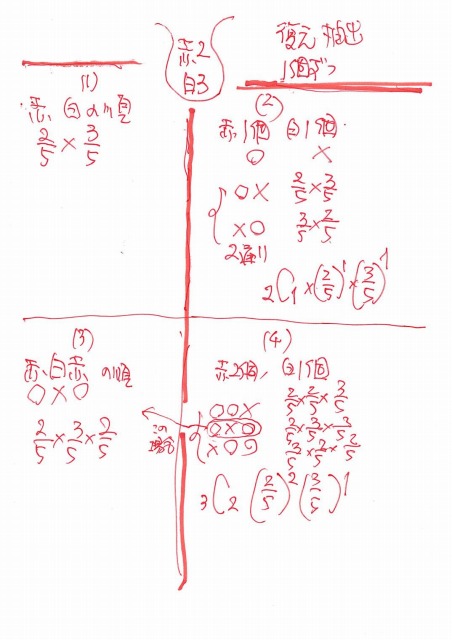 赤2
白3
復元抽出
1個ずつ
(1)
赤、白の順
2/5 × 3/5
(2)
赤1個 白1個
○ ×
○× 2/5 × 3/5
×○ 3/5 × 2/5
2通り
₂C₁ × (2/5)¹ × (3/5)¹
(3)
赤、白、赤の順
○×○
2/5 × 3/5 × 2/5
(4)
赤2個、白1個
○○× 2/5 × 2/5 × 3/5
○×○
×○○
この
場合
₃C₂ (2/5)² (3/5)¹